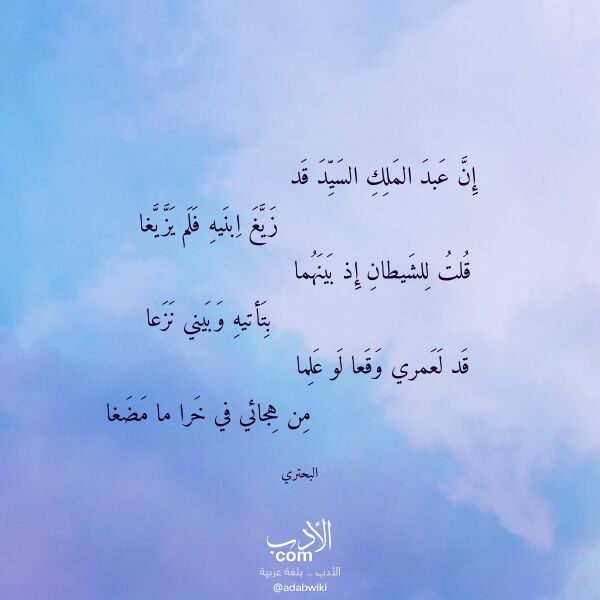 إِنَّ عَبدَ المَلِكِ السَيِّدَ قَد
زَيَّغَ اِبنَيهِ فَلَم يَزَّيَّغا
قُلتُ لِلشَيطانِ إِذ بَينَهُما
بِتَأتيهِ وَبَيني نَزَعا
قَد لَعَمري وَقَعا لَو عَلِما
مِن هِجائي في خَرا ما مَضَغا
البحتري
الأدب
com
الأدب .. بلغة عربية
@adabwiki